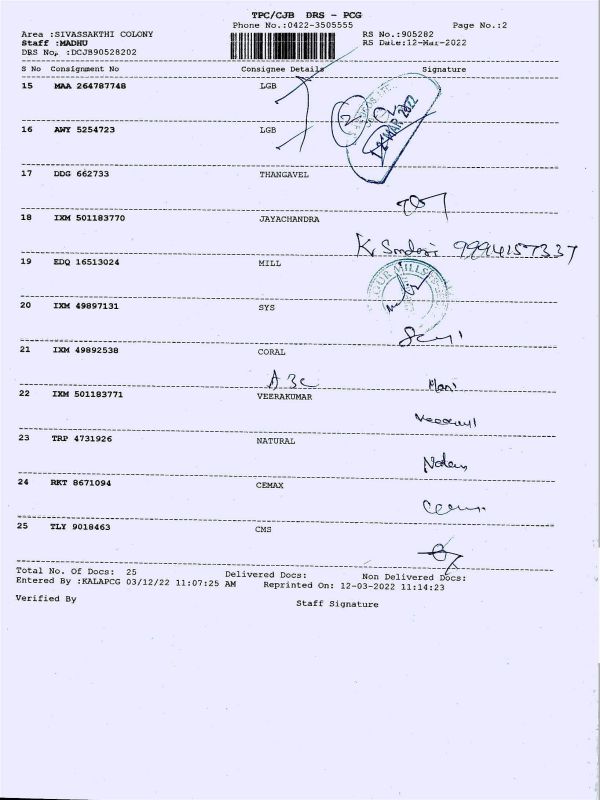 TPC/CJB DRS - PCG
Phone No.:0422-3505555 Page No.:2
Area :SIVASSAKTHI COLONY RS No.:905282
Staff :MADHU RS Date:12-Mar-2022
DRS No. :DCJB90528202
S No Consignment No Consignee Details Signature
15 MAA 264787748 LGB
16 AWY 5254723 LGB
2
12 MAR 2022
17 DDG 662733 THANGAVEL
18 IXM 501183770 JAYACHANDRA
9994157337
19 EDQ 16513024 MILL
MILLS
20 IXM 49897131 SYS
21 IXM 49892538 CORAL
Mani
22 IXM 501183771 VEERAKUMAR
23 TRP 4731926 NATURAL
24 RKT 8671094 CEMAX
25 TLY 9018463 CMS
Total No. Of Docs: 25 Delivered Docs: Non Delivered Docs:
Entered By :KALAPCG 03/12/22 11:07:25 AM Reprinted On: 12-03-2022 11:14:23
Verified By Staff Signature